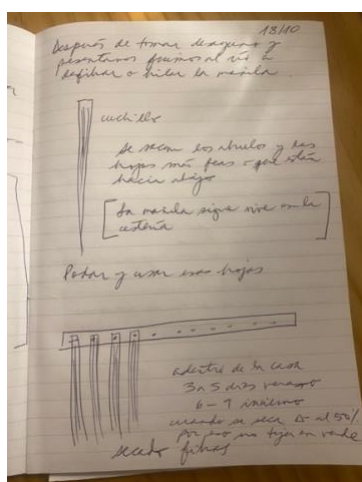 13/10
Después de tomar desayuno y
presentarnos fuimos al río a
desfibrar o hilar la manila.
cuchillo
Se secan los abuelos y las
hojas más feas o que están
hacia abajo
[La manila sigue viva en la
cestería]
Podar y usar esas hojas
adentre de la casa
3 a 5 días verano
6 - 9 invierno
cuando se seca al 50%
por eso no tejer en verde
secado fibras